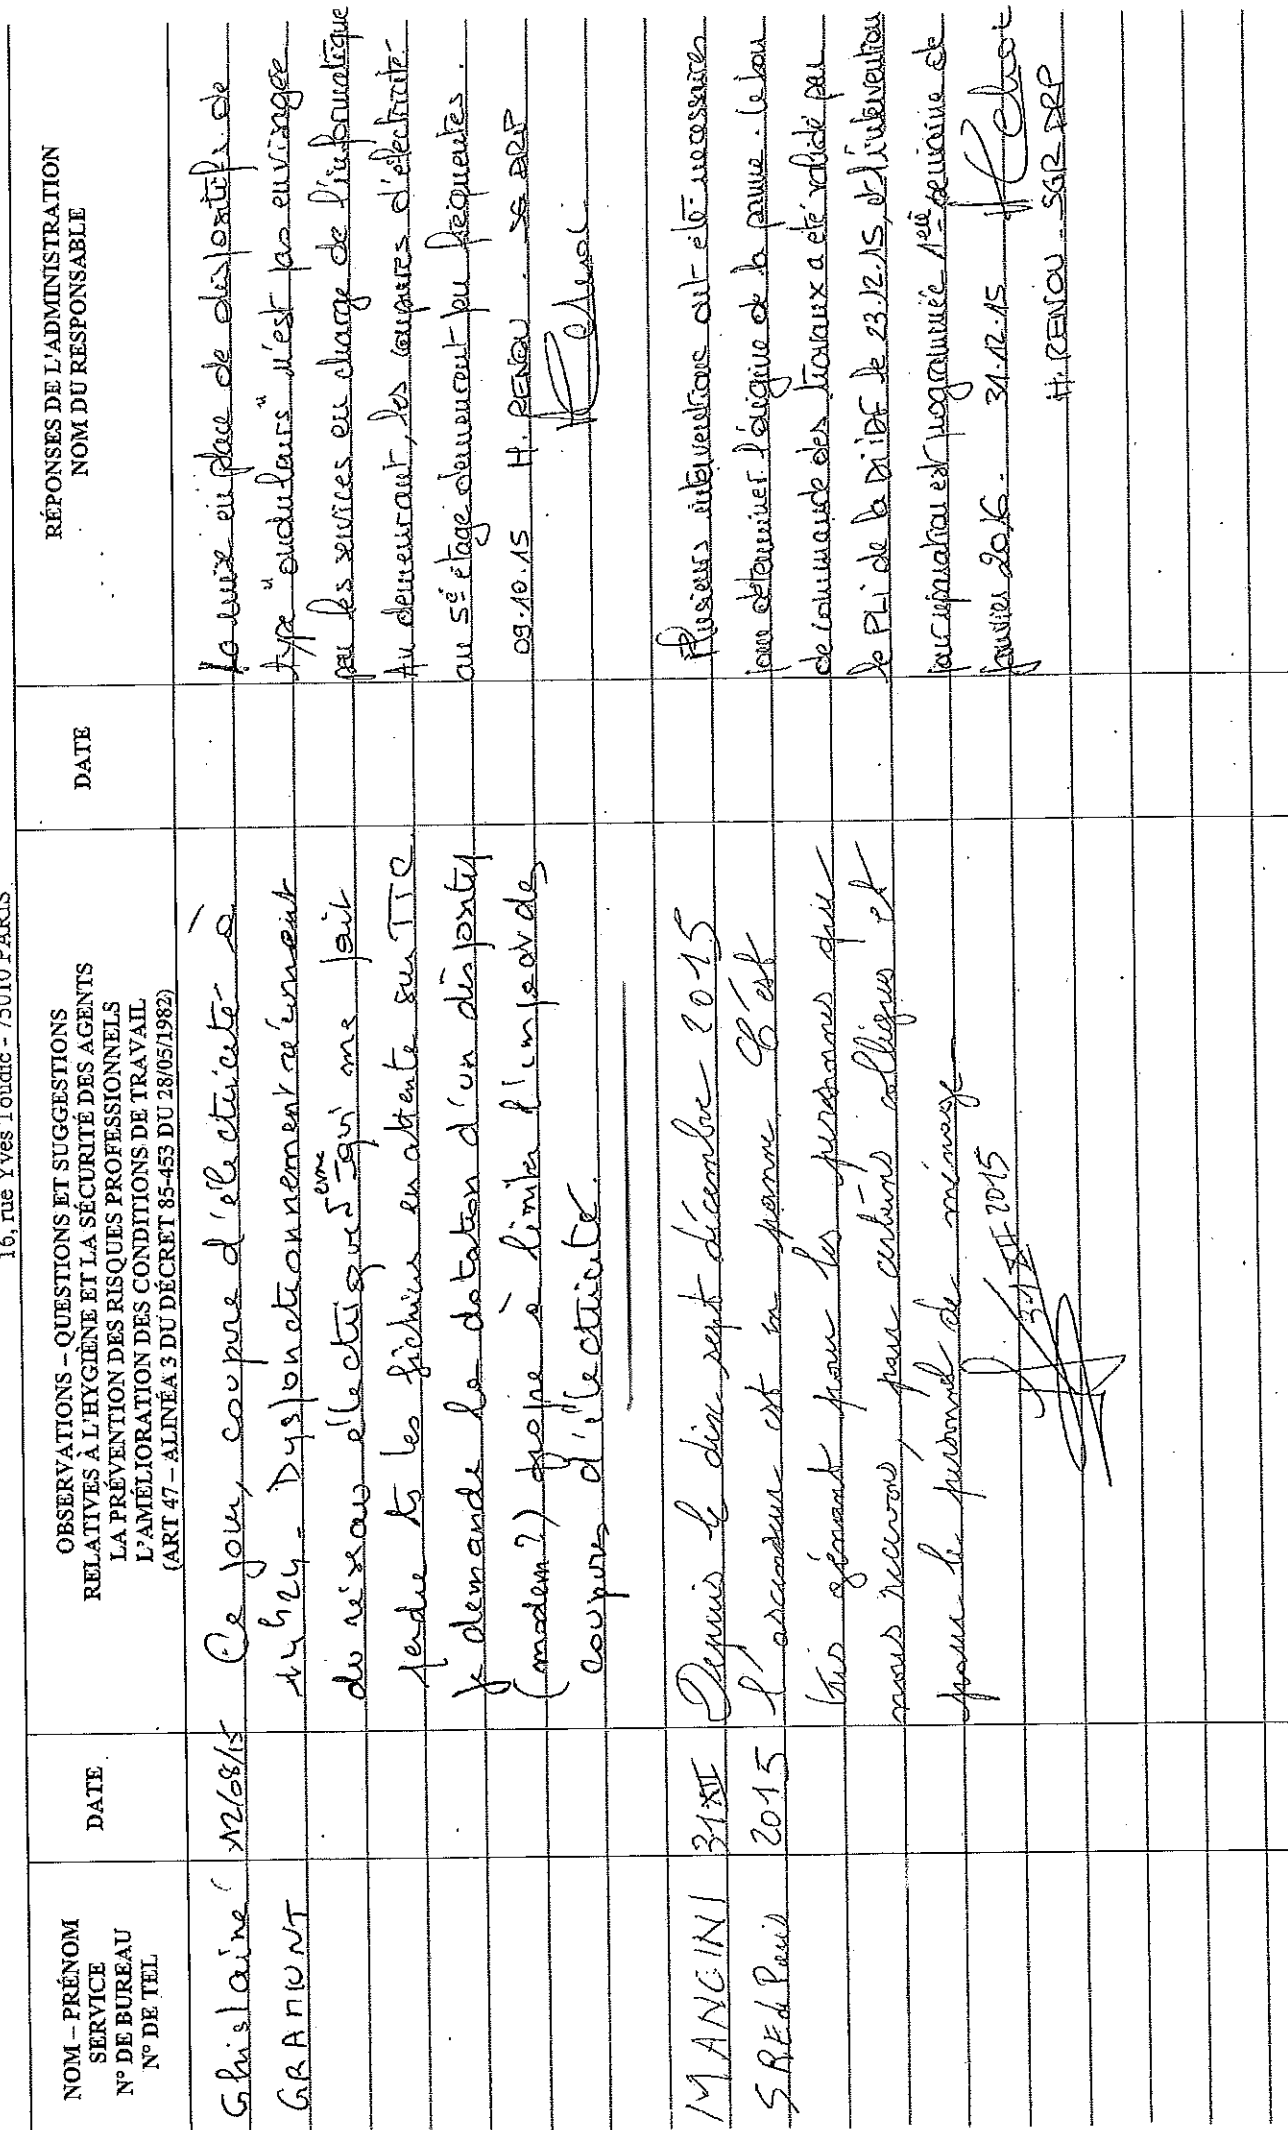 16, rue Yves Toudic - 75010 PARIS
NOM – PRÉNOM
SERVICE
N° DE BUREAU
N° DE TEL
DATE
OBSERVATIONS – QUESTIONS ET SUGGESTIONS
RELATIVES À L'HYGIÈNE ET LA SÉCURITÉ DES AGENTS
LA PRÉVENTION DES RISQUES PROFESSIONNELS
L'AMÉLIORATION DES CONDITIONS DE TRAVAIL
(ART 47 – ALINÉA 3 DU DÉCRET 85-453 DU 28/05/1982)
DATE
RÉPONSES DE L'ADMINISTRATION
NOM DU RESPONSABLE
Ghislaine
GRAMONT
12/08/15
Ce jour, coupure d'électricité à
14h24 - Dysfonctionnement récurrent
du réseau électrique 5eme qui me fait
perdre ts les fichiers en attente sur TTC
je demande la dotation d'un dispositif
(modem ?) propre à limiter l'impact des
coupures d'électricité.
La mise en place de dispositifs de
type "onduleurs" n'est pas envisagée
par les services en charge de l'informatique
Au demeurant, les coupures d'électricité
au 5è étage demeurent peu fréquentes.
09.10.15 H. RENOU . SG DRP
MANGINI
SRE de Paris
31 XII
2015
Depuis le dix sept décembre 2015
l'ascenseur est en panne C'est
très gênant pour les personnes que
nous recevons, pour certains collègues et
pour le personnel de ménage
31 XII 2015
Plusieurs interventions ont été nécessaires
pour déterminer l'origine de la panne. Le bon
de commande des travaux a été validé par
le PLI de la DIDF le 23.12.15, et l'intervention
pour réparation est programmée 1ère semaine de
janvier 2016. 31.12.15
H. RENOU - SGR DRP